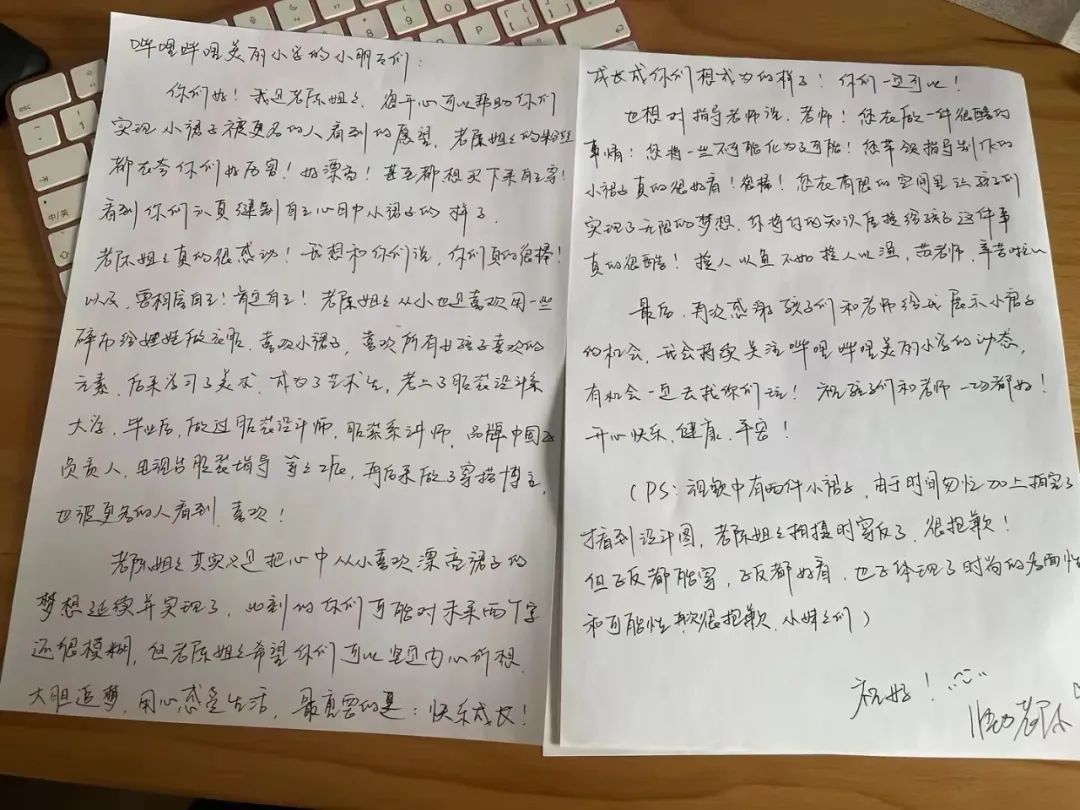 哔哩哔哩美丽小学的小朋友们：
你们好！我是老陈姐姐，很开心可以帮助你们
实现小裙子被更多的人看到的愿望，老陈姐姐的粉丝
都在夸你们好厉害！好漂亮！甚至都想买下来自己穿！
看到你们认真缝制自己心目中小裙子的样子，
老陈姐姐真的很感动！我想和你们说，你们真的很棒！
以及，要相信自己！肯定自己！老陈姐姐从小也是喜欢用一些
碎布给娃娃做衣服，喜欢小裙子，喜欢所有女孩子喜欢的
元素，后来学习了美术，成为了艺术生，考上了服装设计系
大学，毕业后，做过服装设计师，服装系讲师，品牌中国区
负责人，电视台服装指导等等工作，再后来做了穿搭博主，
也被更多的人看到、喜欢！
老陈姐姐其实只是把心中从小喜欢漂亮裙子的
梦想延续并实现了，此刻的你们可能对未来两个字
还很模糊，但老陈姐姐希望你们可以坚定内心所想，
大胆追梦，用心感受生活，最重要的是：快乐成长！
成长成你们想成为的样子！你们一定可以！
也想对指导老师说，老师！您在做一件很酷的
事情！您将一些不可能化为了可能！您带领指导制作的
小裙子真的很好看！很棒！您在有限的空间里让孩子们
实现了无限的梦想，你将你的知识传授给孩子这件事
真的很酷！授人以鱼不如授人以渔，老师，辛苦啦
最后，再次感谢孩子们和老师给我展示小裙子
的机会，我会持续关注哔哩哔哩美丽小学的动态，
有机会一定去找你们玩！祝孩子们和老师一切都好！
开心快乐，健康，平安！
（PS：视频中有两件小裙子，由于时间匆忙加上拍完了
才看到设计图，老陈姐姐拍摄时穿反了，很抱歉！
但正反都能穿，正反都好看，也正体现了时尚的多面性
和可能性 再次很抱歉，小妹妹们）
祝好！
esc
中/英